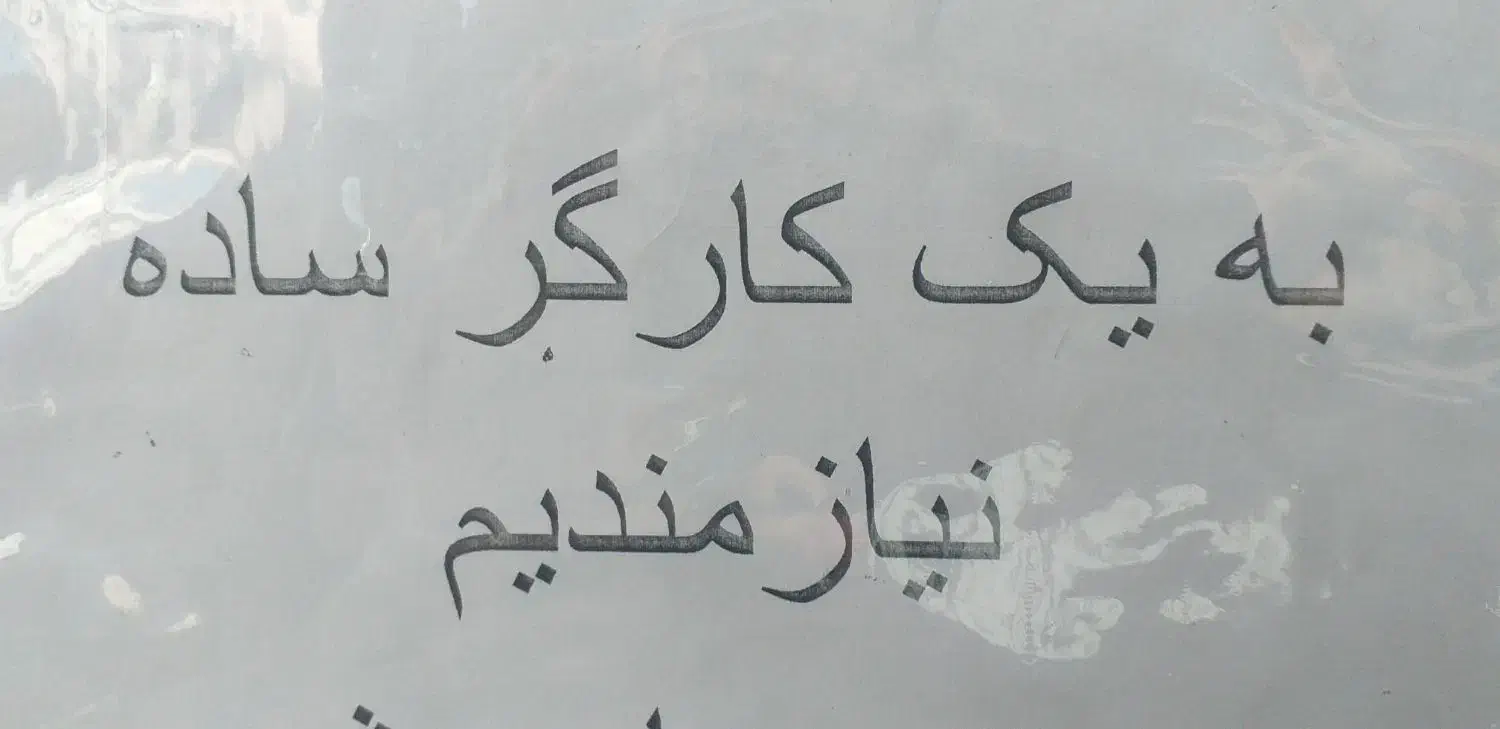 به یک کارگر ساده
نیازمندیم